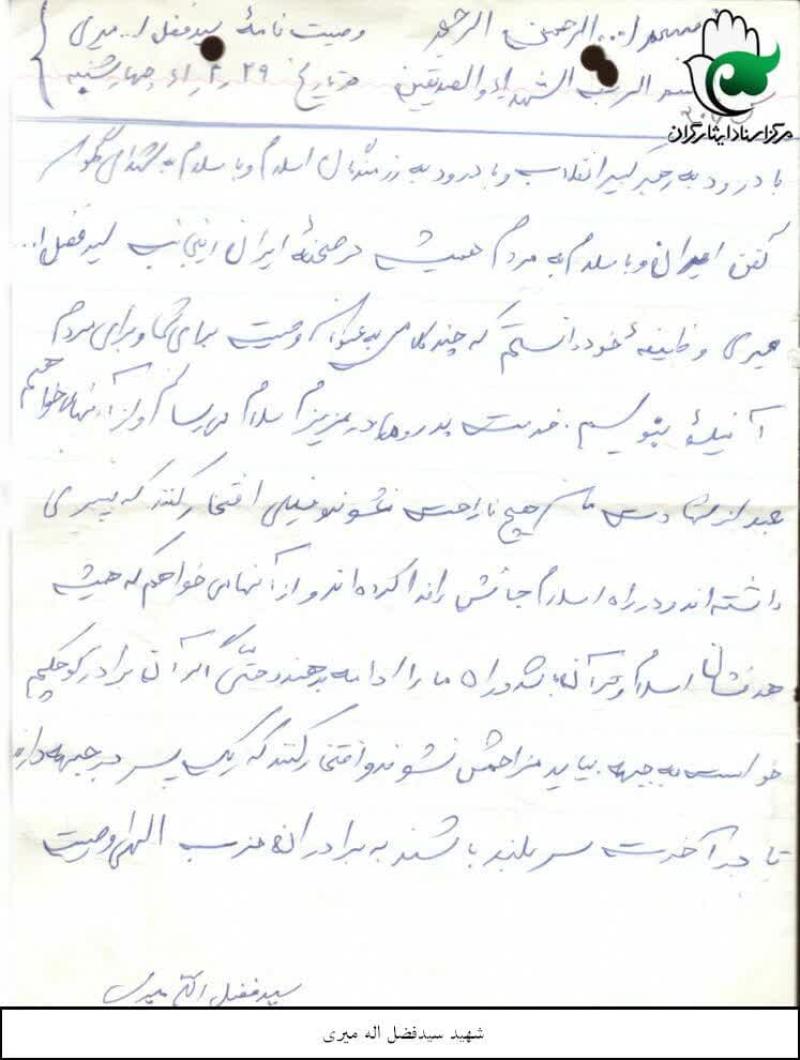 بسم ا... الرحمن الرحیم وصیت نامهٔ سیدفضل ا... میری
رب الشهداء والصدیقین در تاریخ چهارشنبه
مرکز اسناد ایثارگران
با درود به رهبر کبیر انقلاب و با درود به رزمندگان اسلام و با سلام به شهدای گلگون
کفن ایران و با سلام به مردم همیشه در صحنهٔ ایران اینجانب سیدفضل ا...
میری وظیفهٔ خود دانستم که چند کلامی به عنوان وصیت برای شما و برای مردم
آنیلهٔ بنویسم. خدمت پدر و مادر عزیزم سلام می رسانم و از آنها می خواهم
بعد از شهادت من هیچ ناراحت نشوند و خیلی افتخار کنند که پسری
داشته اند و در راه اسلام جانش را فدا کرده اند و از آنها می خواهم که همیشه
هدفشان اسلام و قرآن باشد و راه ما را ادامه بدهند و حتّی اگر آن برادر کوچکم
خواست به جبهه بیاید مزاحمش نشوند و افتخار کنند که یک پسر در جبهه دارند
تا در آخرت سربلند باشند به برادران حزب الهی وصیت
سیدفضل الله میری
شهید سیدفضل اله میری